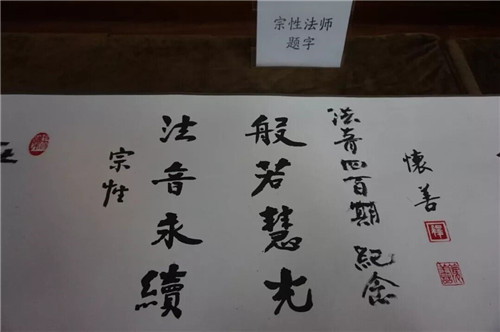 宗性法师
题字
懷善
法音四百期紀念
般若慧光
法音永續
宗性